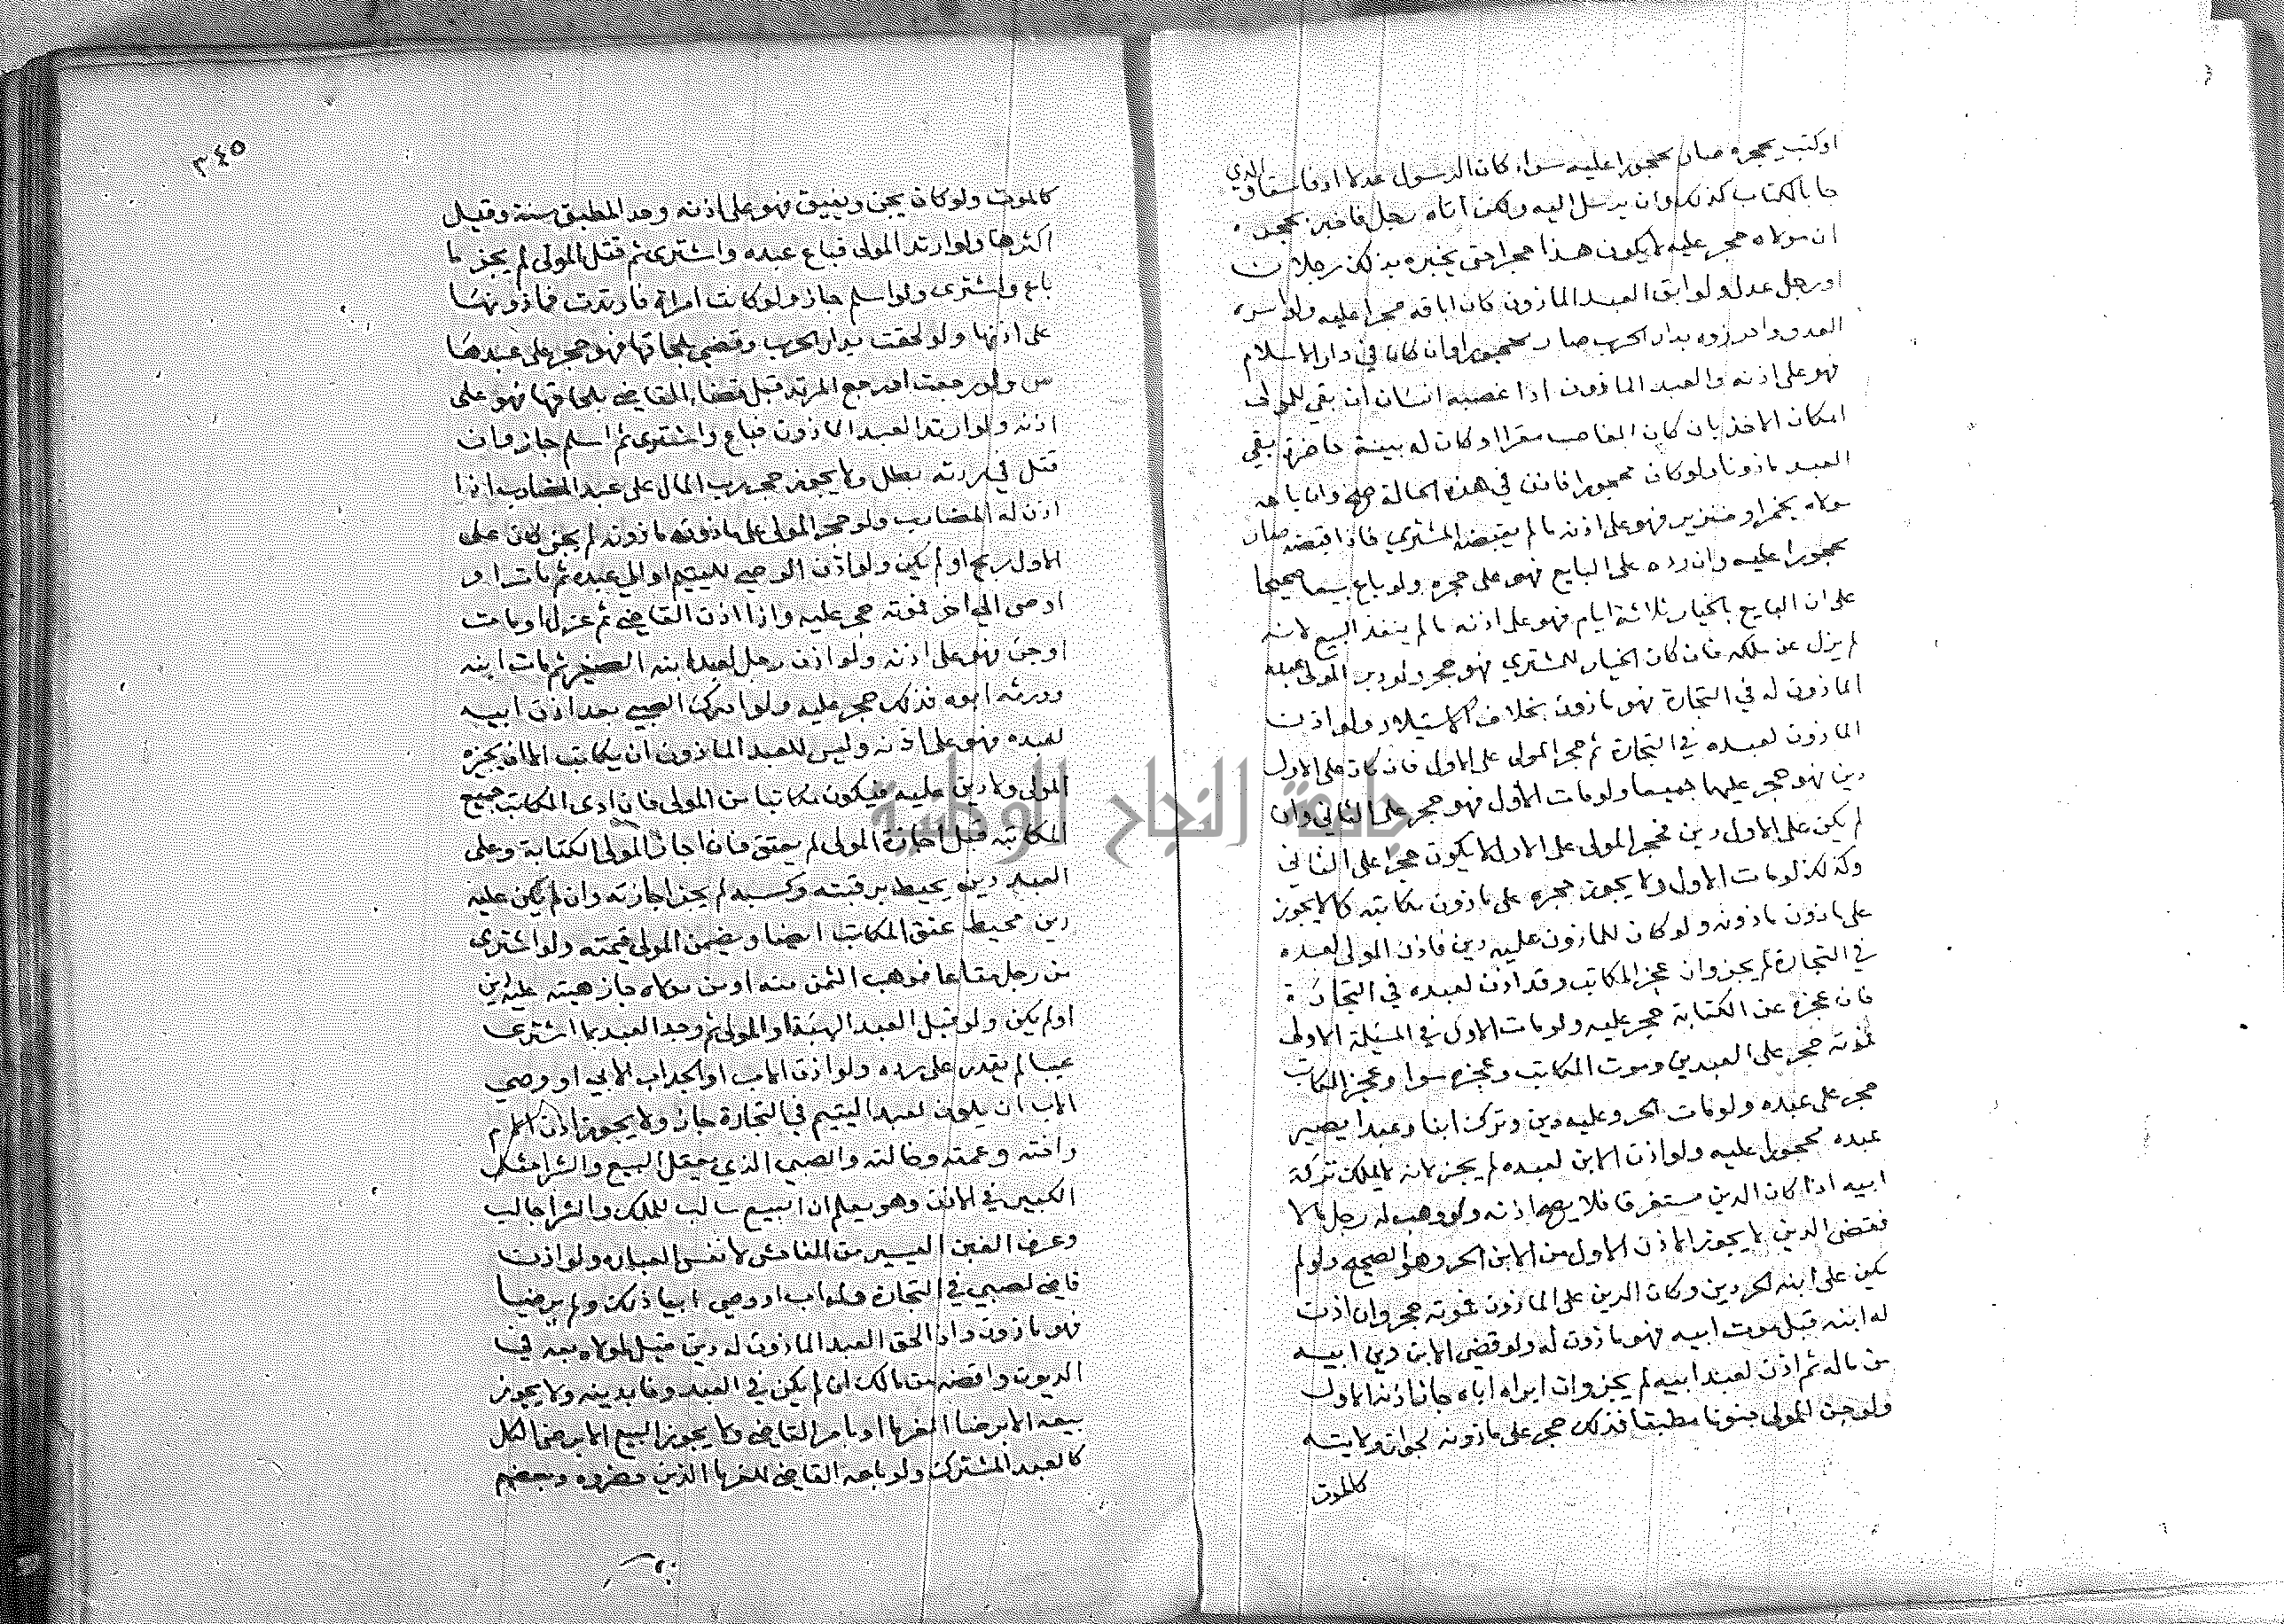 اوكتب بحجره صار محجورا عليه سواء كان الرسول عدلا اوفاسقا والذي
جا بالكتاب كذلك وان لم يرسل اليه ولكن اتاه رجل فاخبره بحجره
ان مولاه حجر عليه لا يكون هذا حجرا حتى يخبره بذلك رجلان
اورجل عدل ولو ابق العبد الماذون كان اباقه حجرا عليه ولو اسره
العدو واحرزوه بدار الحرب صار محجورا وان كان في دار الاسلام
فهو على اذنه والعبد الماذون اذا غصبه انسان ان بقي للمولى
امكان الاخذ بان كان الغاصب مقرا او كان له بينة حاضرة بقي
العبد ماذونا ولو كان محجورا فاذن في هذه الحالة صح وان باعه
مولاه بخمر او خنزير فهو على اذنه ما لم يقبضه المشتري فاذا قبضه صار
محجورا عليه وان رده على البايع فهو على حجره ولو باع بيعا صحيحا
على ان البايع بالخيار ثلاثة ايام فهو على اذنه ما لم ينفذ البيع لانه
لم يزل عن ملكه فان كان الخيار للمشتري فهو حجر ولو دبر المولى عبده
الماذون له في التجارة فهو ماذون بخلاف الاستيلاد ولو اذن
الماذون لعبده في التجارة ثم حجر المولى على الاول فان كان على الاول
دين فهو حجر عليهما جميعا ولو مات الاول فهو حجر على الثاني وان
لم يكن على الاول دين فحجر المولى على الاول لا يكون حجرا على الثاني
وكذلك لو مات الاول ولا يجوز حجره على ماذون مكاتبه كما لا يجوز
على ماذون ماذونه ولو كان للماذون عليه دين فاذن المولى لعبده
في التجارة لم يجز وان عجز المكاتب وقد اذن لعبده في التجارة
فان عجزه عن الكتابة حجر عليه ولو مات الاول في المسئلة الاولى
فموته حجر على العبدين وموت المكاتب وعجزه سوا وعجز المكاتب
حجر على عبده ولو مات الحر وعليه دين وترك ابنا وعبدا يصير
عبده محجورا عليه ولو اذن الابن لعبده لم يجز لانه لا يملك تركة
ابيه اذا كان الدين مستغرقا فلا يصح اذنه ولو وهب له رجل مالا
فقضى الدين لا يجوز الاذن الاول من الابن الحر وهو الصحيح ولو لم
يكن على ابنه الحر دين وكان الدين على الماذون فموته حجر وان اذن
له ابنه قبل موت ابيه فهو ماذون له ولو قضى الابن دين ابيه
من ماله ثم اذن لعبد ابيه لم يجز وان ابراه اباه جاز اذنه الاول
ولو جن المولى جنونا مطبقا فذلك حجر على ماذونه لجواز ولايته
كالموت
٣٤٥
كالموت ولو كان يجن ويفيق فهو على اذنه وحد المطبق سنة وقيل
اكثرها ولو ارتد المولى فباع عبده واشترى ثم قتل المولى لم يجز ما
باع واشترى ولو اسلم جاز ولو كانت امراة فارتدت فماذونها
على اذنها ولو لحقت بدار الحرب وقضي بلحاقها فهو حجر على عبدها
ولو رجعت او رجع المرتد قبل قضاء القاضي بلحاقها فهو على
اذنه ولو ارتد العبد الماذون فباع واشترى ثم اسلم جاز وان
قتل في ردته بطل ولا يجوز حجر رب المال على عبد المضارب اذا
اذن له المضارب ولو حجر المولى على ماذونه ماذونه لم يجز كان على
الاول ربح او لم يكن ولو اذن الوصي لليتيم او الى عبده ثم مات او
اوصى الى اخر فموته حجر عليه واذا اذن القاضي ثم عزل او مات
او جن فهو على اذنه ولو اذن رجل لعبد ابنه الصغير ثم مات ابنه
وورثه ابوه فذلك حجر عليه ولو ادرك الصبي بعد اذن ابيه
لعبده فهو على اذنه وليس للعبد الماذون ان يكاتب الا ان يجيزه
المولى ولا دين عليه فيكون مكاتبا من المولى فان ادى المكاتب جميع
المكاتبة قبل اجازة المولى لم يعتق فان اجاز المولى الكتابة وعلى
العبد دين يحيط برقبته وكسبه لم يجز اجازته وان لم يكن عليه
دين محيط عتق المكاتب ايضا ويضمن المولى قيمته ولو اشترى
من رجل متاعا فوهب الثمن منه او من مولاه جاز هبته عليه دين
او لم يكن ولو قبل العبد الهبة او المولى ثم وجد العبد بما اشترى
عيبا لم يقدر على رده ولو اذن الاب او الجد اب الاب او وصي
الاب ان يكون لعبد اليتيم في التجارة جاز ولا يجوز اذن الام
واخته وعمته وخالته والصبي الذي يعقل البيع والشرا مثل
الكبير في الاذن وهو يعلم ان البيع سالب للملك والشرا جالب
وعرف الغبن اليسير من الفاحش لا نفس العبارة ولو اذن
قاضي لصبي في التجارة وله اب او وصي ابيا ذلك ولم يرضيا
فهو ماذون واذا لحق العبد الماذون له دين قيل لمولاه بعه في
الديون واقضه من مالك ان لم يكن في العبد وفا بدينه ولا يجوز
بيعه الا برضا الغرما او بامر القاضي ولا يجوز البيع الا برضى الكل
كالعبد المشترك ولو باعه القاضي للغرما الذين حضروه وبعضهم
جامعة النجاح الوطنية